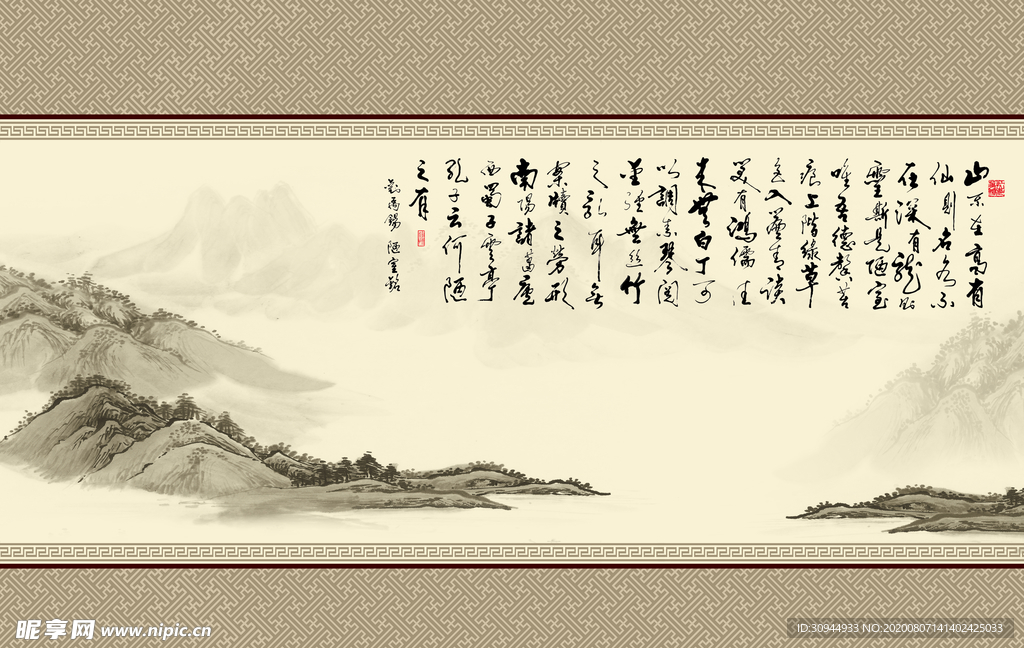 山不在高有
仙則名水不
在深有龍則
靈斯是陋室
唯吾德馨苔
痕上階緑草
色入簾青談
笑有鴻儒往
來無白丁可
以調素琴閱
金經無絲竹
之亂耳無
案牘之勞形
南陽諸葛廬
西蜀子雲亭
孔子云何陋
之有
劉禹錫 陋室銘
昵享网 www.nipic.cn
ID:30944933 NO:20200807141402425033